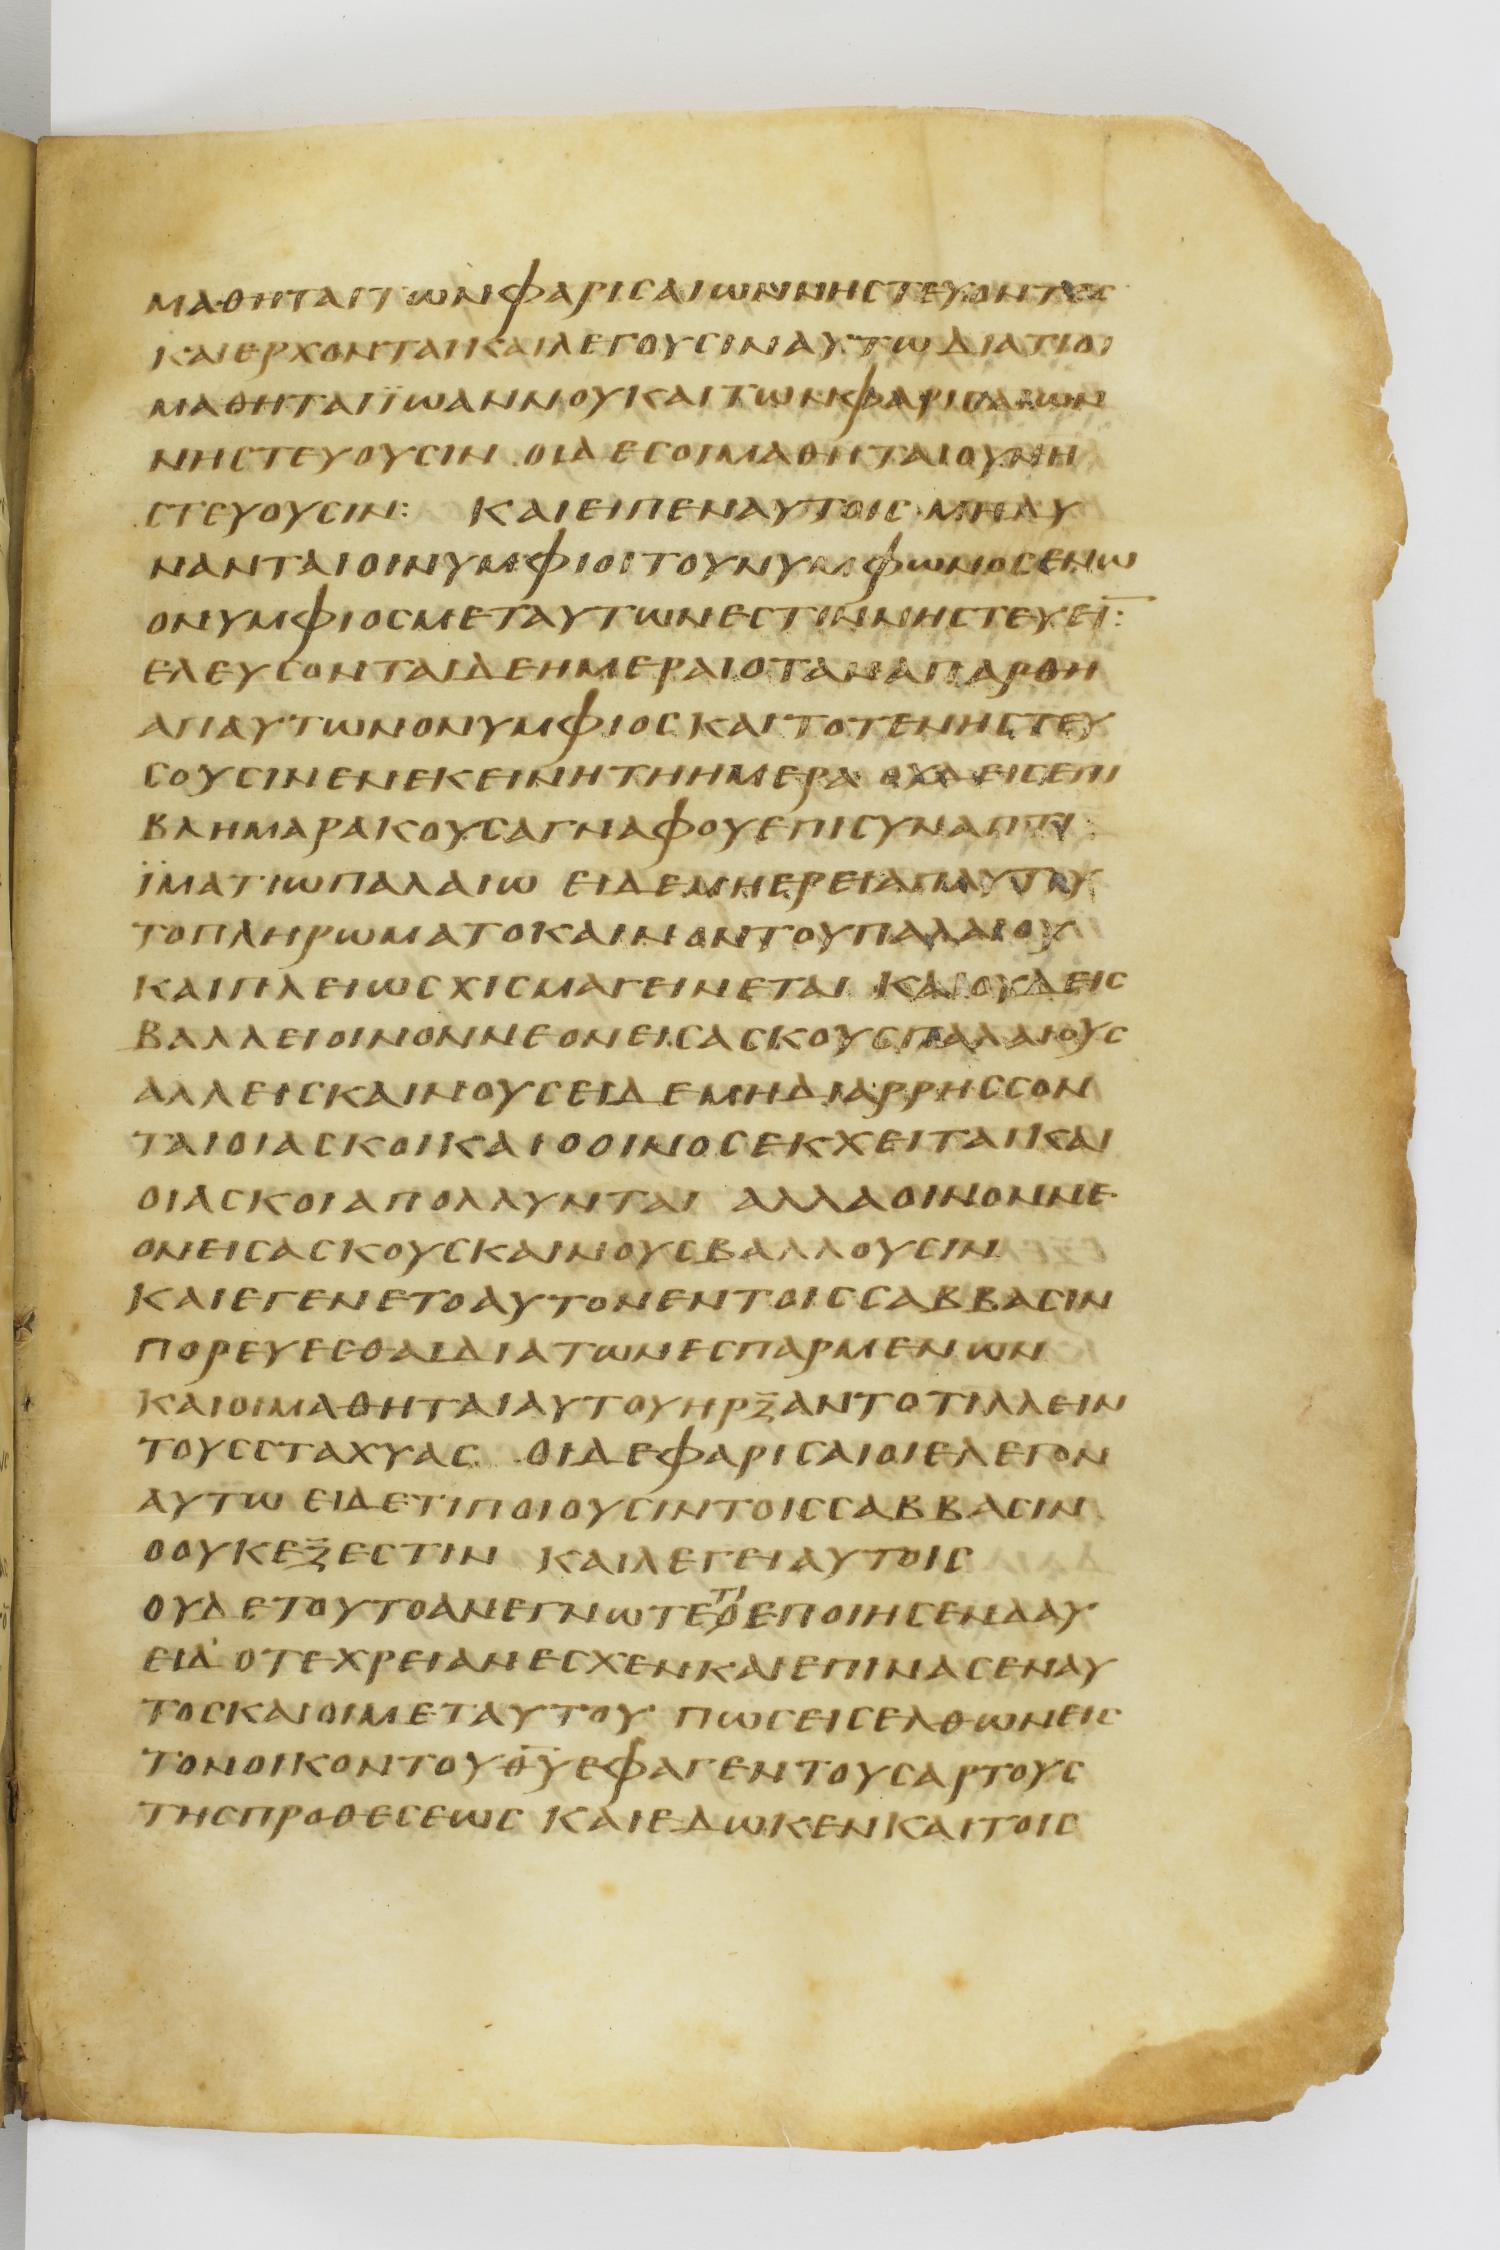 ΜΑΘΗΤΑΙΤΩΝΦΑΡΙСΑΙΩΝΝΗСΤΕΥΟΝΤΕС
ΚΑΙΕΡΧΟΝΤΑΙΚΑΙΛΕΓΟΥСΙΝΑΥΤΩΔΙΑΤΙΟΙ
ΜΑΘΗΤΑΙΪΩΑΝΝΟΥΚΑΙΤΩΝΦΑΡΙСΑΙΩΝ
ΝΗСΤΕΥΟΥСΙΝ ΟΙΔΕСΟΙΜΑΘΗΤΑΙΟΥΝΗ
СΤΕΥΟΥСΙΝ: ΚΑΙΕΙΠΕΝΑΥΤΟΙС ΜΗΔΥ
ΝΑΝΤΑΙΟΙΝΥΜΦΙΟΙΤΟΥΝΥΜΦΩΝΟСΕΝΩ
ΟΝΥΜΦΙΟСΜΕΤΑΥΤΩΝΕСΤΙΝΝΗСΤΕΥΕΙ̅:
ΕΛΕΥСΟΝΤΑΙΔΕΗΜΕΡΑΙΟΤΑΝΑΠΑΡΘΗ
ΑΠΑΥΤΩΝΟΝΥΜΦΙΟСΚΑΙΤΟΤΕΝΗСΤΕΥ
СΟΥСΙΝΕΝΕΚΕΙΝΗΤΗΗΜΕΡΑ ΟΥΔΕΙСΕΠΙ
ΒΛΗΜΑΡΑΚΟΥСΑΓΝΑΦΟΥΕΠΙСΥΝΑΠΤΕΙ
ΪΜΑΤΙΩΠΑΛΑΙΩ ΕΙΔΕΜΗΕΡΕΙΑΠΑΥΤΟΥ
ΤΟΠΛΗΡΩΜΑΤΟΚΑΙΝΟΝΤΟΥΠΑΛΑΙΟΥ
ΚΑΙΠΛΕΙΩСΧΙСΜΑΓΕΙΝΕΤΑΙ ΚΑΙΟΥΔΕΙС
ΒΑΛΛΕΙΟΙΝΟΝΝΕΟΝΕΙСΑСΚΟΥСΠΑΛΑΙΟΥС
ΑΛΛΕΙСΚΑΙΝΟΥСΕΙΔΕΜΗΔΙΑΡΡΗССΟΝ
ΤΑΙΟΙΑСΚΟΙΚΑΙΟΟΙΝΟСΕΚΧΕΙΤΑΙΚΑΙ
ΟΙΑСΚΟΙΑΠΟΛΛΥΝΤΑΙ ΑΛΛΑΟΙΝΟΝΝΕ
ΟΝΕΙСΑСΚΟΥСΚΑΙΝΟΥСΒΑΛΛΟΥСΙΝ
ΚΑΙΕΓΕΝΕΤΟΑΥΤΟΝΕΝΤΟΙССΑΒΒΑСΙΝ
ΠΟΡΕΥΕСΘΑΙΔΙΑΤΩΝΕСΠΑΡΜΕΝΩΝ
ΚΑΙΟΙΜΑΘΗΤΑΙΑΥΤΟΥΗΡΞΑΝΤΟΤΙΛΛΕΙΝ
ΤΟΥССΤΑΧΥΑС ΟΙΔΕΦΑΡΙСΑΙΟΙΕΛΕΓΟΝ
ΑΥΤΩ ΕΙΔΕΤΙΠΟΙΟΥСΙΝΤΟΙССΑΒΒΑСΙΝ
ΟΟΥΚΕΞΕСΤΙΝ ΚΑΙΛΕΓΕΙΑΥΤΟΙС
ΟΥΔΕΤΟΥΤΟΑΝΕΓΝΩΤΕΤΙΟΕΠΟΙΗСΕΝΔΑΥ
ΕΙΔ ΟΤΕΧΡΕΙΑΝΕСΧΕΝΚΑΙΕΠΙΝΑСΕΝΑΥ
ΤΟСΚΑΙΟΙΜΕΤΑΥΤΟΥ ΠΩСΕΙСΕΛΘΩΝΕΙС
ΤΟΝΟΙΚΟΝΤΟΥΘ̅Υ̅ΕΦΑΓΕΝΤΟΥСΑΡΤΟΥС
ΤΗСΠΡΟΘΕСΕΩС ΚΑΙΕΔΩΚΕΝΚΑΙΤΟΙС